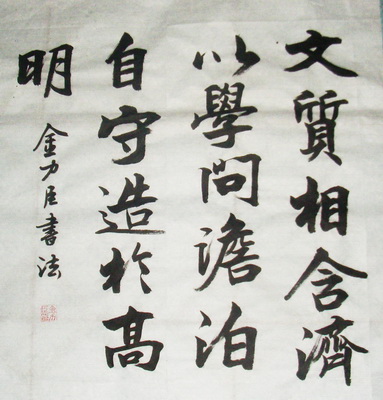 文質相含濟
以學問澹泊
自守造於高
明
金力臣書法